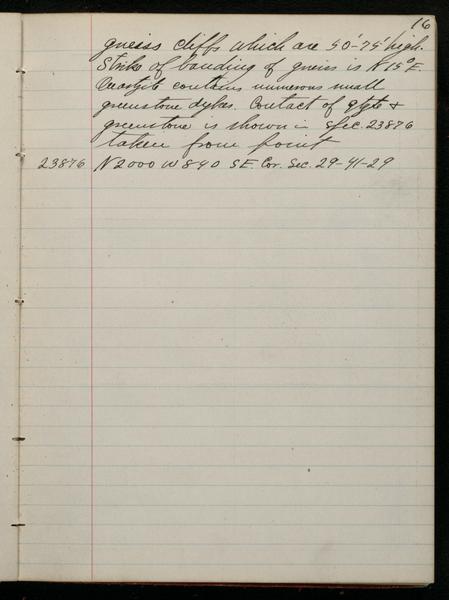 16
gneiss cliffs which are 50'-75' high.
Strike of banding of gneiss is N 15° E.
Quartzite contains numerous small
greenstone dykes. Contact of qtzte +
greenstone is shown in spec. 23876
taken from point
23876 N 2000 W 840 S E. Cor. Sec. 29-41-29